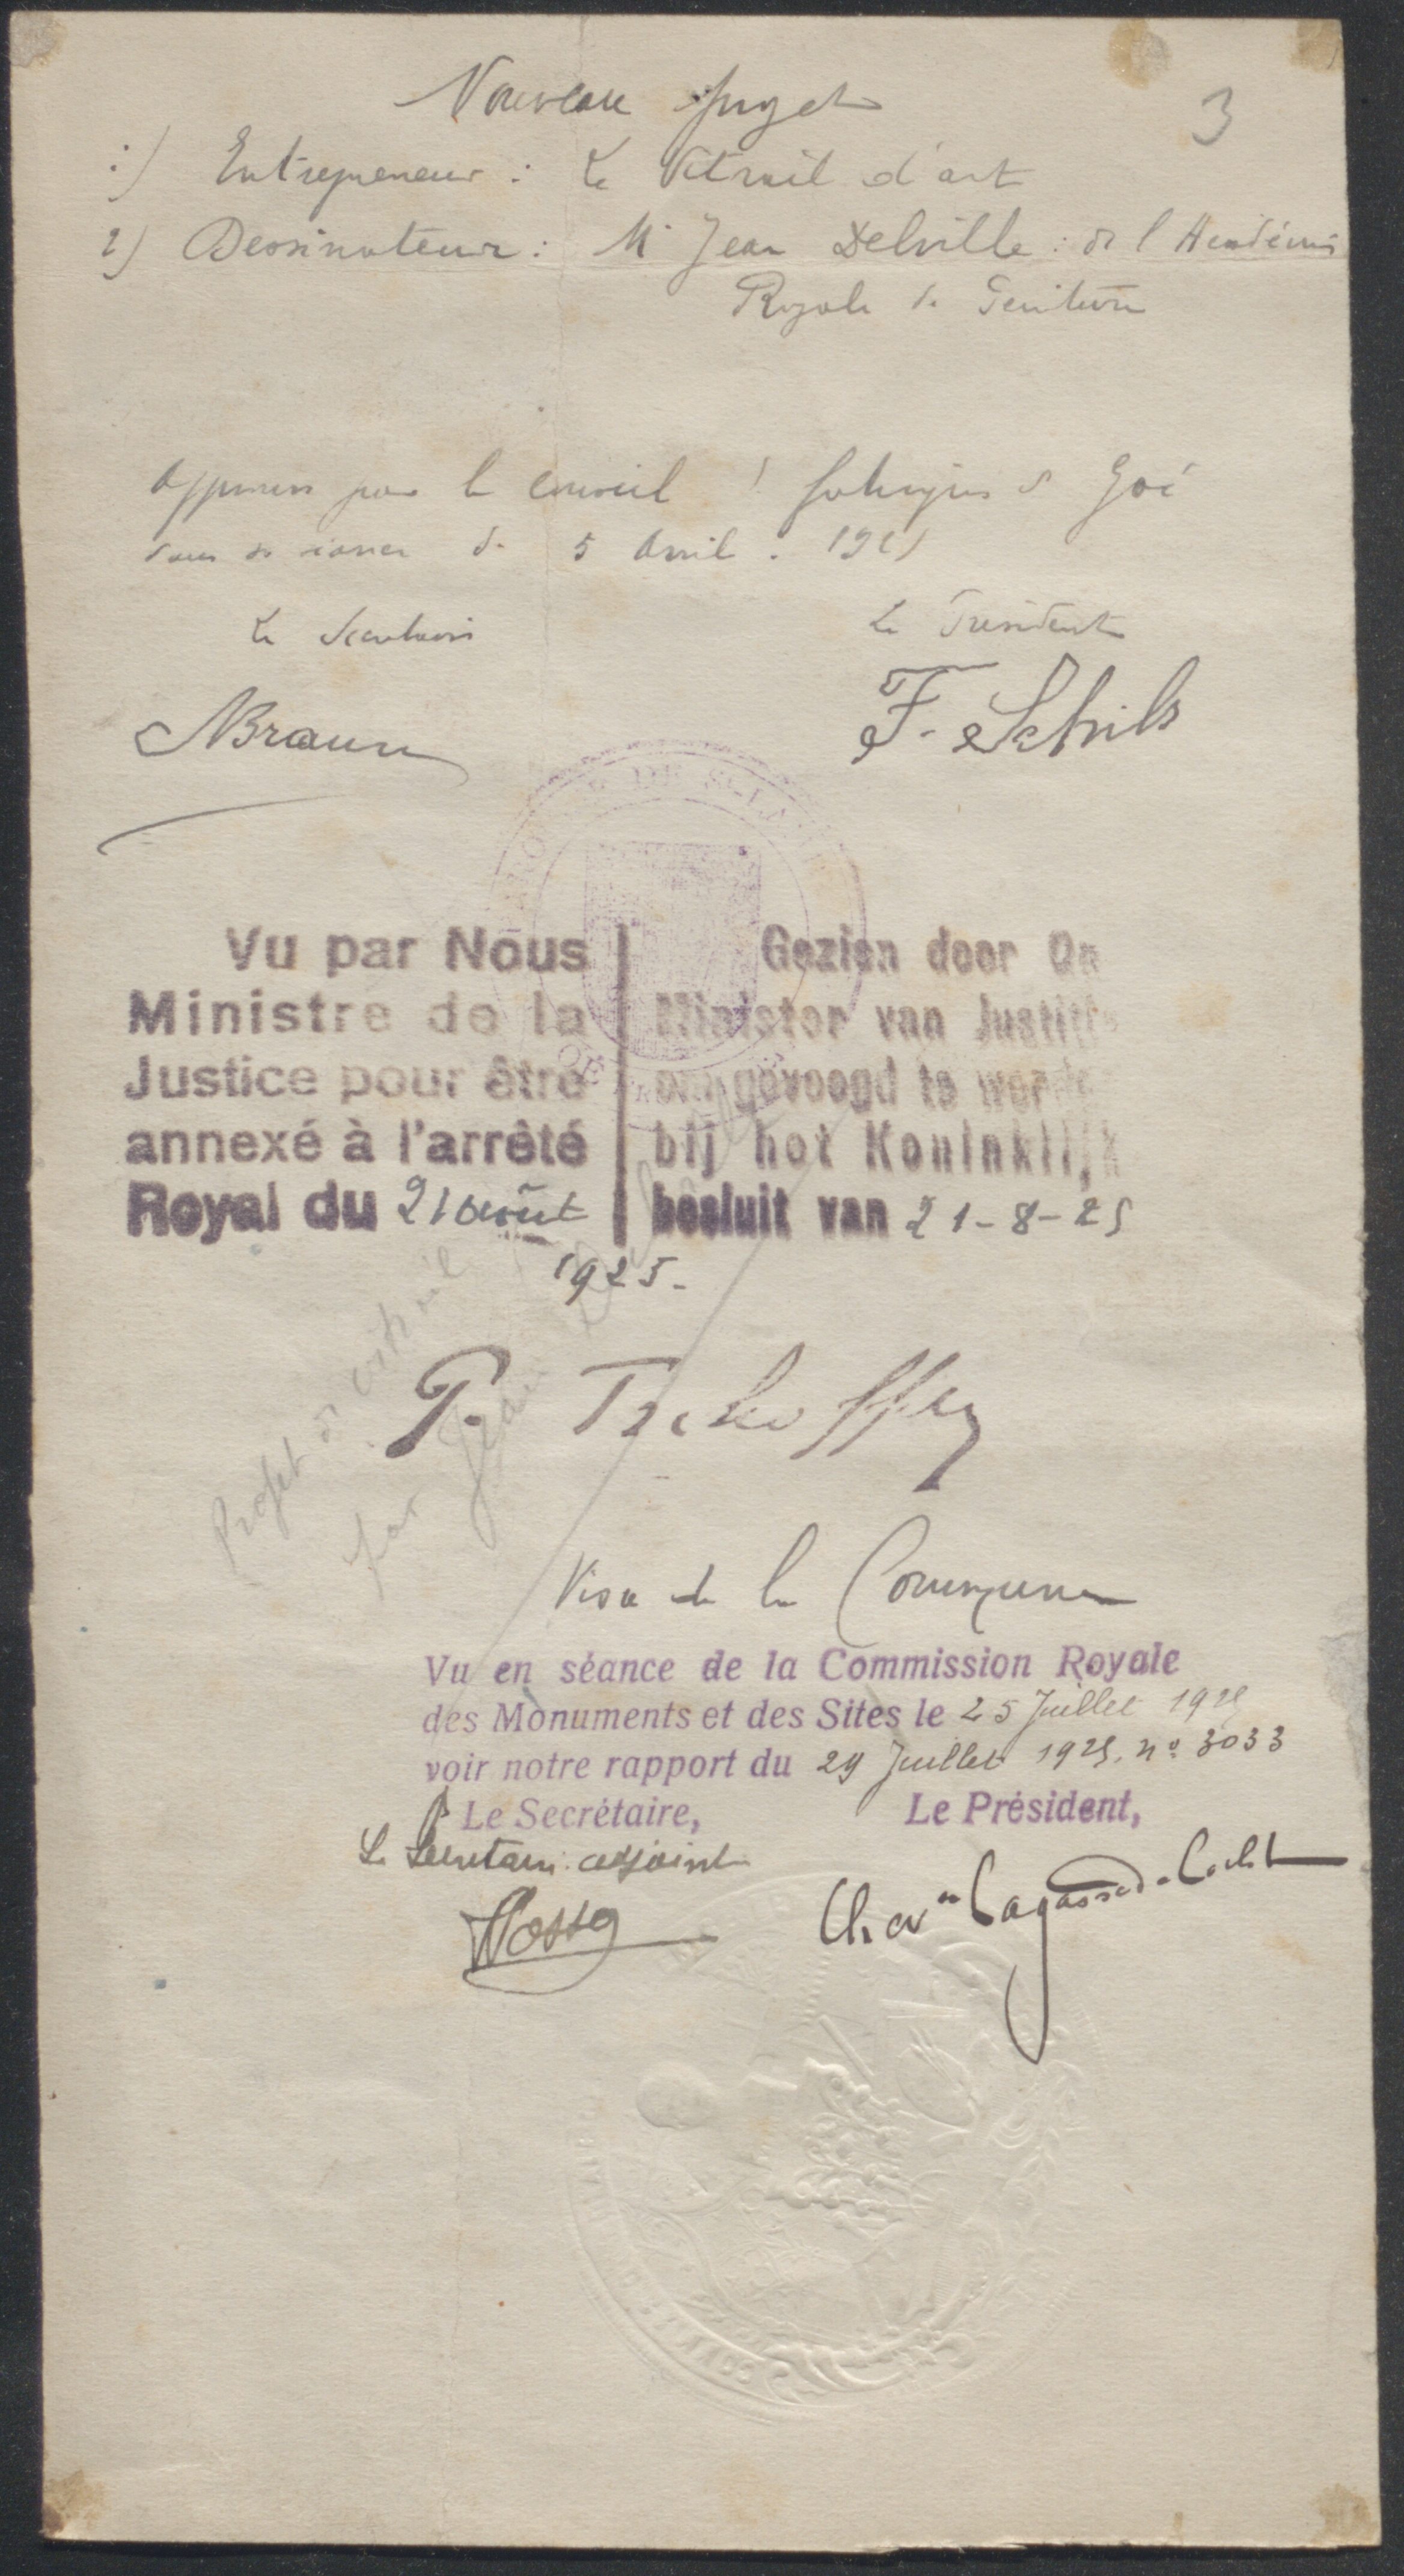 Nouveau projet
3
1) Entrepreneur : Le Vitrail d'art
2) Dessinateur : Mr Jean Delville : de l'Académie
Royale de Peinture
par le conseil de Goé
5 Avril . 1925
Le Secrétaire
Le Président
NBraun
F. Schils
Vu par Nous
Ministre de la
Justice pour être
annexé à l'arrêté
Royal du 21 août
1925.-
Gezien door On
Minister van Justitie
om gevoegd te worde
bij het Koninklijk
besluit van 21-8-25
P. Tschoffen
Projet de vitrail
par Jean
Visa de la Commune
Vu en séance de la Commission Royale
des Monuments et des Sites le 25 Juillet 1925
voir notre rapport du 29 Juillet 1925. n° 3033
Le Secrétaire,
Le Président,
Le Secrétaire adjoint
Chev er Lagasse de Locht